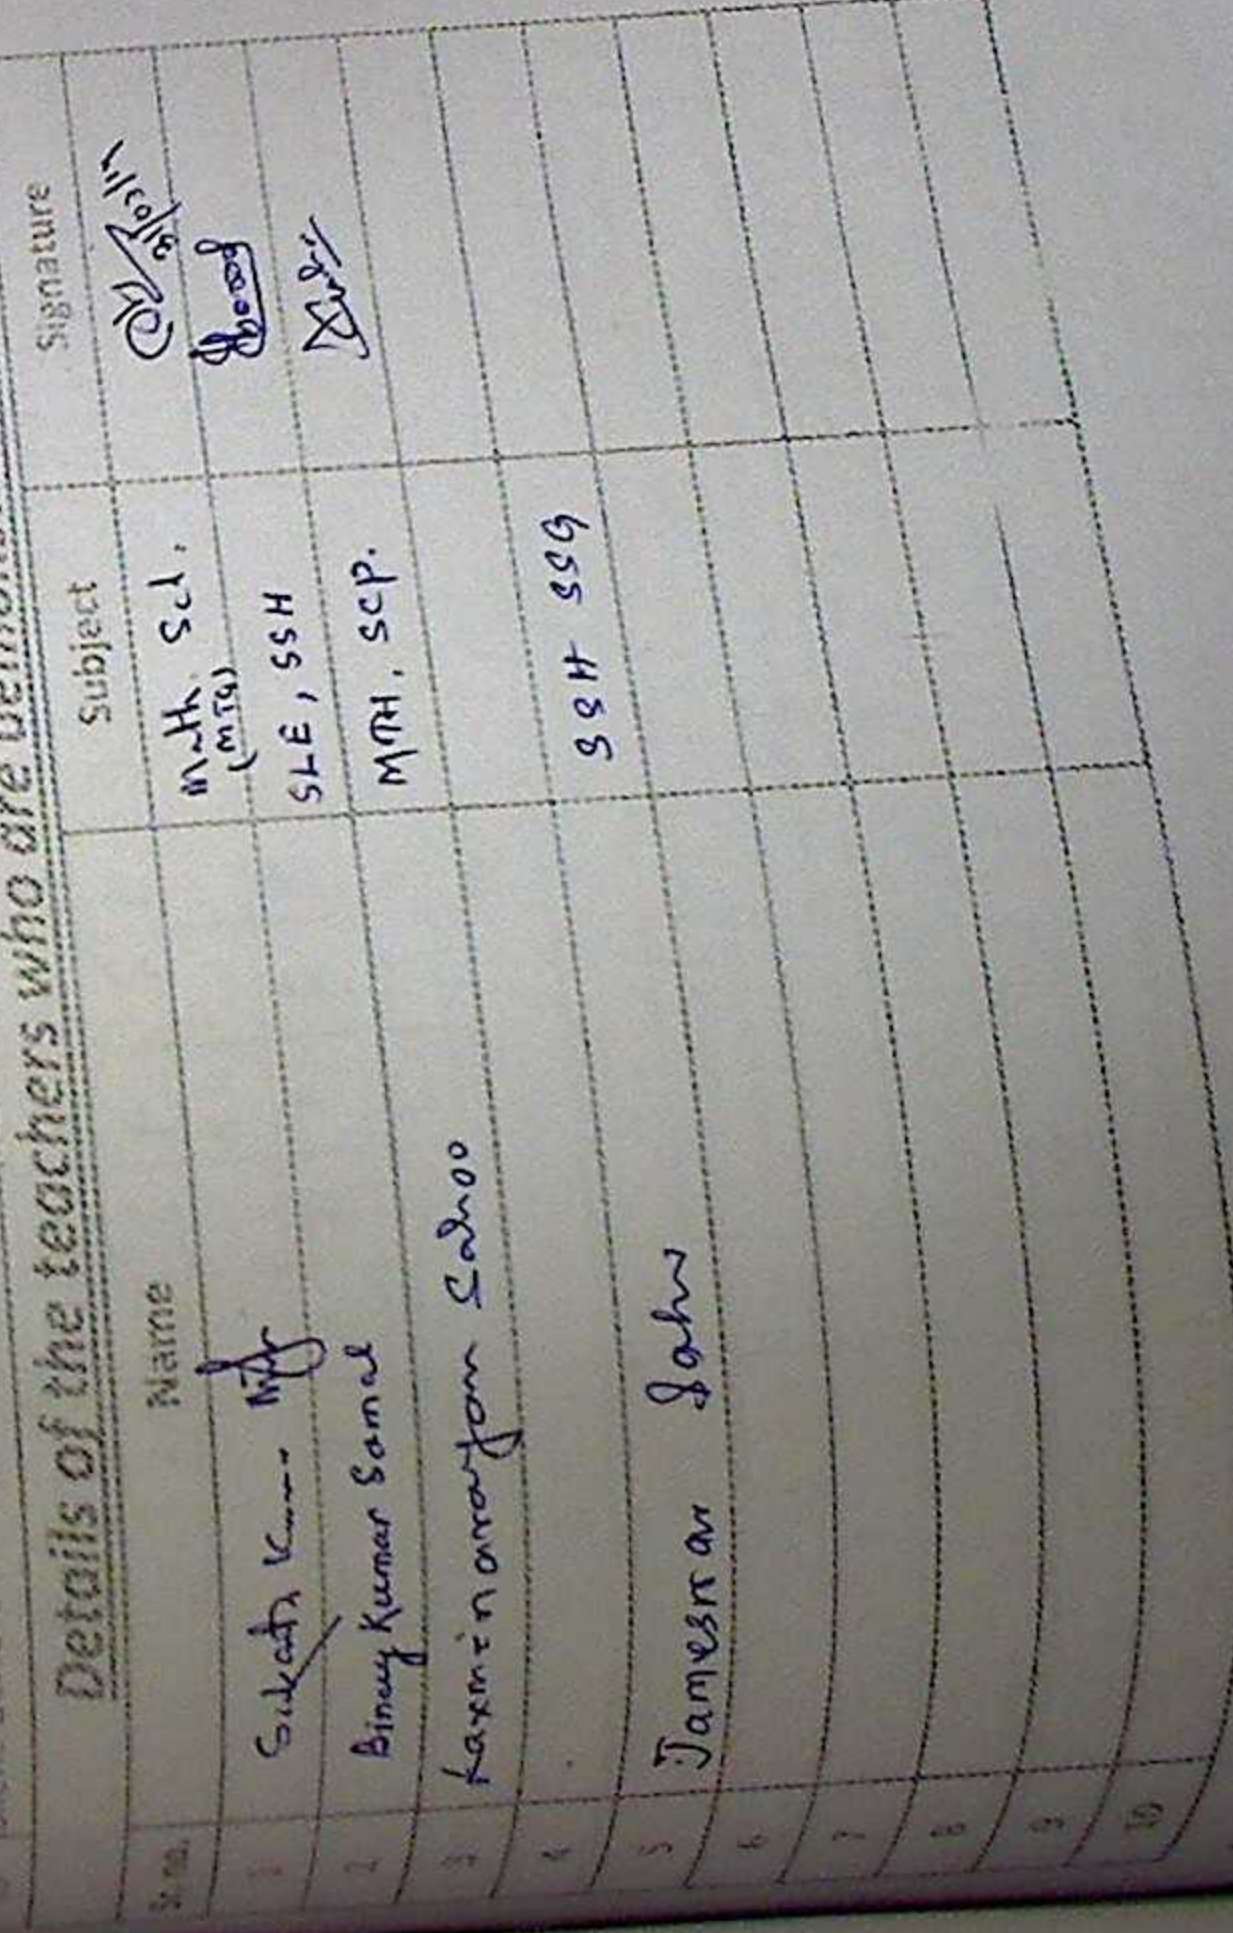 Details of the teachers who are
Sr.no. Name Subject Signature
1 Math. Scl.
(MTG)
2 Binay Kumar Samal SLE, SSH
3 Laxminarayan Sahoo MTH, SCP.
4
5 Jamesran Sahu SSH SSG
6
7
8
9
10